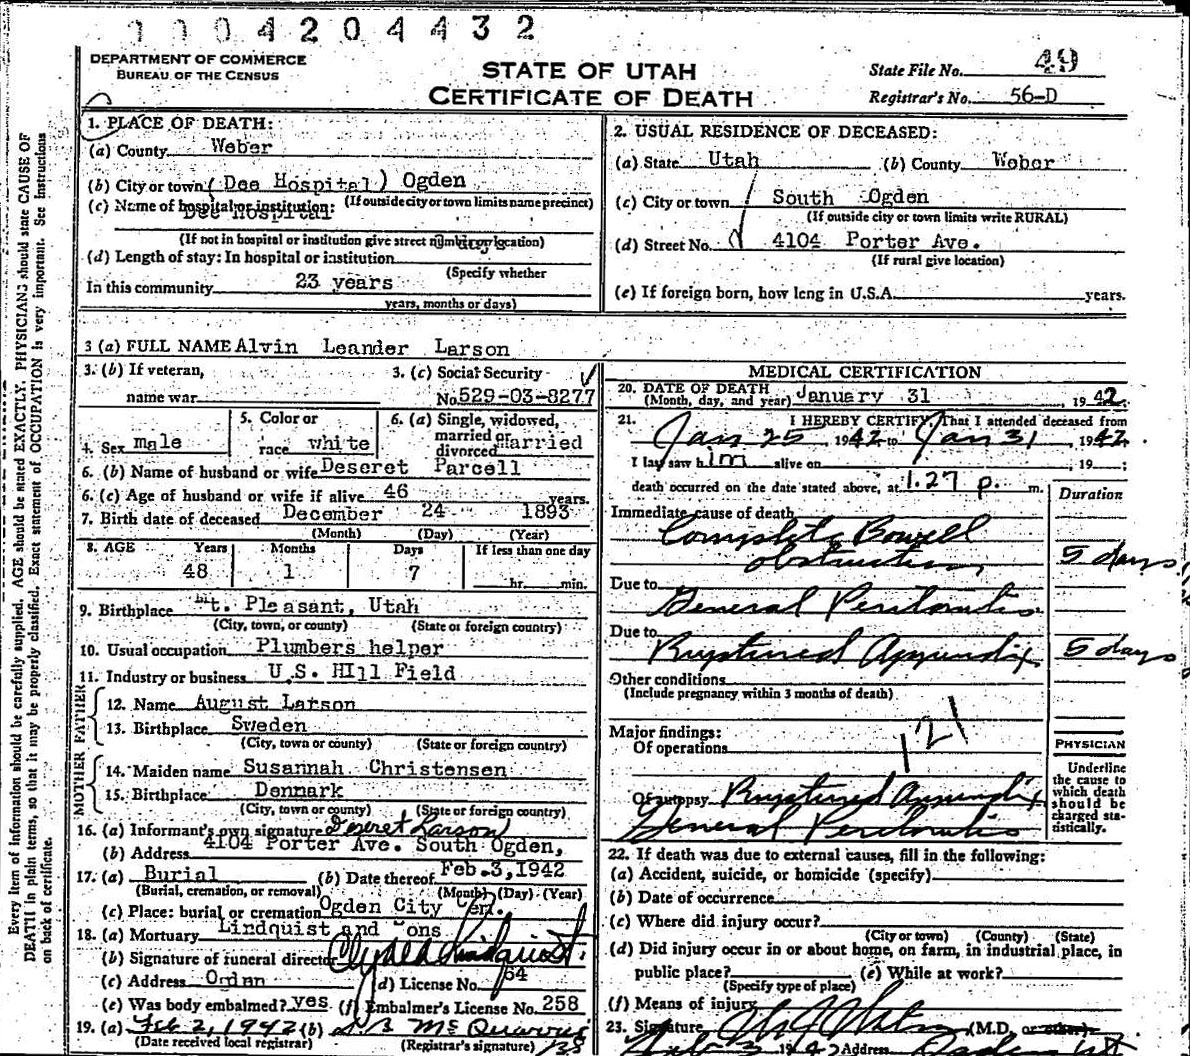 1 1 0 4 2 0 4 4 3 2
DEPARTMENT OF COMMERCE
BUREAU OF THE CENSUS
STATE OF UTAH
CERTIFICATE OF DEATH
State File No. 49
Registrar's No. 56-D
Every item of information should be carefully supplied. AGE should be stated EXACTLY. PHYSICIANS should state CAUSE OF
DEATH in plain terms, so that it may be properly classified. Exact statement of OCCUPATION is very important. See Instructions
on back of certificate.
1. PLACE OF DEATH:
(a) County Weber
(b) City or town (Dee Hospital) Ogden
(If outside city or town limits name precinct)
(c) Name of hospital or institution:
Dee Hospital
(If not in hospital or institution give street number or location)
(d) Length of stay: In hospital or institution
(Specify whether
In this community 23 years
years, months or days)
2. USUAL RESIDENCE OF DECEASED:
(a) State Utah (b) County Weber
(c) City or town South Ogden
(If outside city or town limits write RURAL)
(d) Street No. 4104 Porter Ave.
(If rural give location)
(e) If foreign born, how long in U.S.A. years.
3 (a) FULL NAME Alvin Leander Larson
3. (b) If veteran,
name war
3. (c) Social Security
No. 529-03-8277
4. Sex male
5. Color or
race white
6. (a) Single, widowed,
married or
divorced Married
6. (b) Name of husband or wife Deseret Parcell
6. (c) Age of husband or wife if alive 46 years.
7. Birth date of deceased December 24 1893
(Month) (Day) (Year)
8. AGE Years Months Days If less than one day
48 1 7 hr. min.
9. Birthplace Mt. Pleasant, Utah
(City, town, or county) (State or foreign country)
10. Usual occupation Plumbers helper
11. Industry or business U.S. HIll Field
FATHER
12. Name August Larson
13. Birthplace Sweden
(City, town or county) (State or foreign country)
MOTHER
14. Maiden name Susannah Christensen
15. Birthplace Denmark
(City, town or county) (State or foreign country)
16. (a) Informant's own signature Deseret Larson
(b) Address 4104 Porter Ave. South Ogden,
17. (a) Burial (b) Date thereof Feb.3,1942
(Burial, cremation, or removal) (Month) (Day) (Year)
(c) Place: burial or cremation Ogden City Cem.
18. (a) Mortuary Lindquist and Sons
(b) Signature of funeral director Clyde Lindquist
(c) Address Ogden (d) License No. 64
(e) Was body embalmed? yes (f) Embalmer's License No. 258
19. (a) Feb 2, 1942 (b)
(Date received local registrar) (Registrar's signature)
MEDICAL CERTIFICATION
20. DATE OF DEATH
(Month, day, and year) January 31, 1942
21. I HEREBY CERTIFY, That I attended deceased from
Jan 25, 1942 to Jan 31, 1942.
I last saw him alive on , 19 ;
death occurred on the date stated above, at 1.27 p. m.
Duration
Immediate cause of death
Complete Bowell
obstruction 5 days
Due to
General Peritonitis
Due to
Ruptured Appendix 5 days
Other conditions
(Include pregnancy within 3 months of death)
121
Major findings:
Of operations
Of autopsy Ruptured Appendix
General Peritonitis
PHYSICIAN
Underline
the cause to
which death
should be
charged sta-
tistically.
22. If death was due to external causes, fill in the following:
(a) Accident, suicide, or homicide (specify)
(b) Date of occurrence
(c) Where did injury occur?
(City or town) (County) (State)
(d) Did injury occur in or about home, on farm, in industrial place, in
public place? (e) While at work?
(Specify type of place)
(f) Means of injury
23. Signature (M.D. or other)
Feb 3 1942 Address Ogden Ut